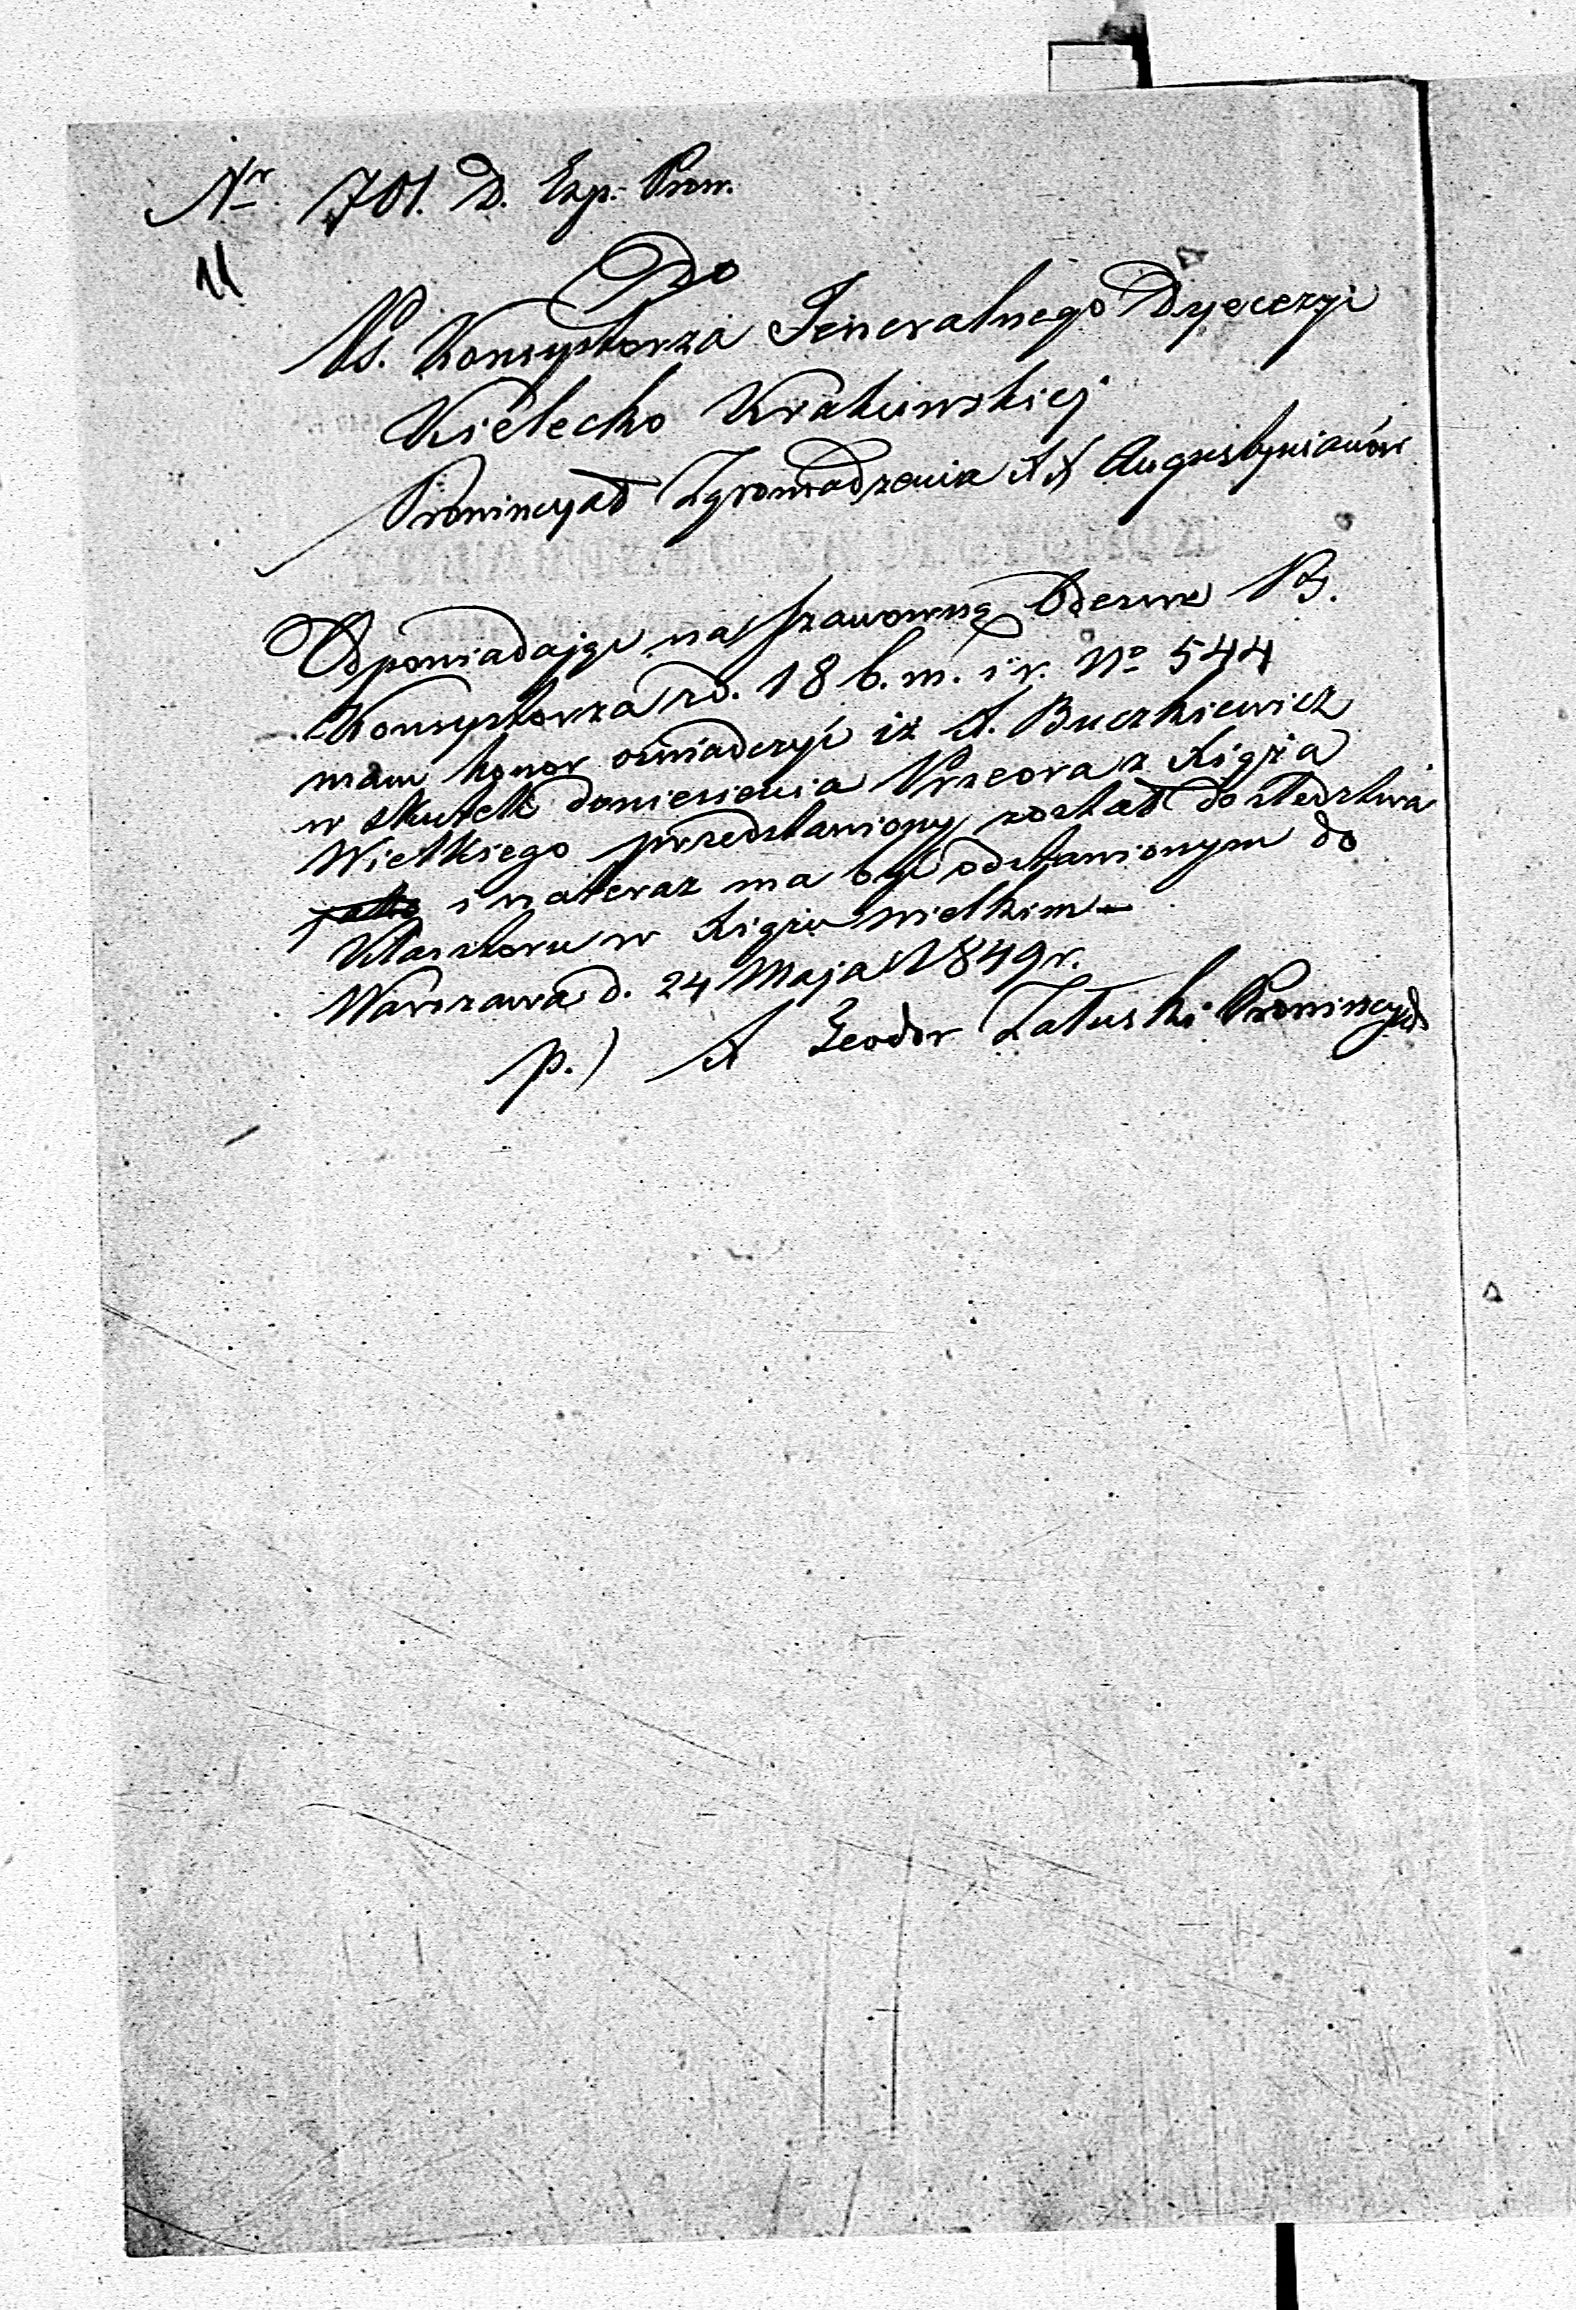 Nr 701. D. Exp. Prow.
11
Do
Ps. Konsystorza Jeneralnego Dyecezyi
Kielecko Krakowskiej
Prowincyał Zgromadzenia XX Augustynianów
Odpowiadając na szanowną Odezwę Ps.
Konsystorza z d. 18 b. m. i r. No 544
mam honor oświadczyć iż X. Buczkiewicz
w skutek doniesienia Przeora z Xiąża
Wielkiego przedstawiony został do śledztwa
i na teraz ma być odstawionym do
Klasztoru w Xiążu wielkim
Warszawa d. 24 Maja 1849 r.
p.) X Teodor Załuski Prowincyał